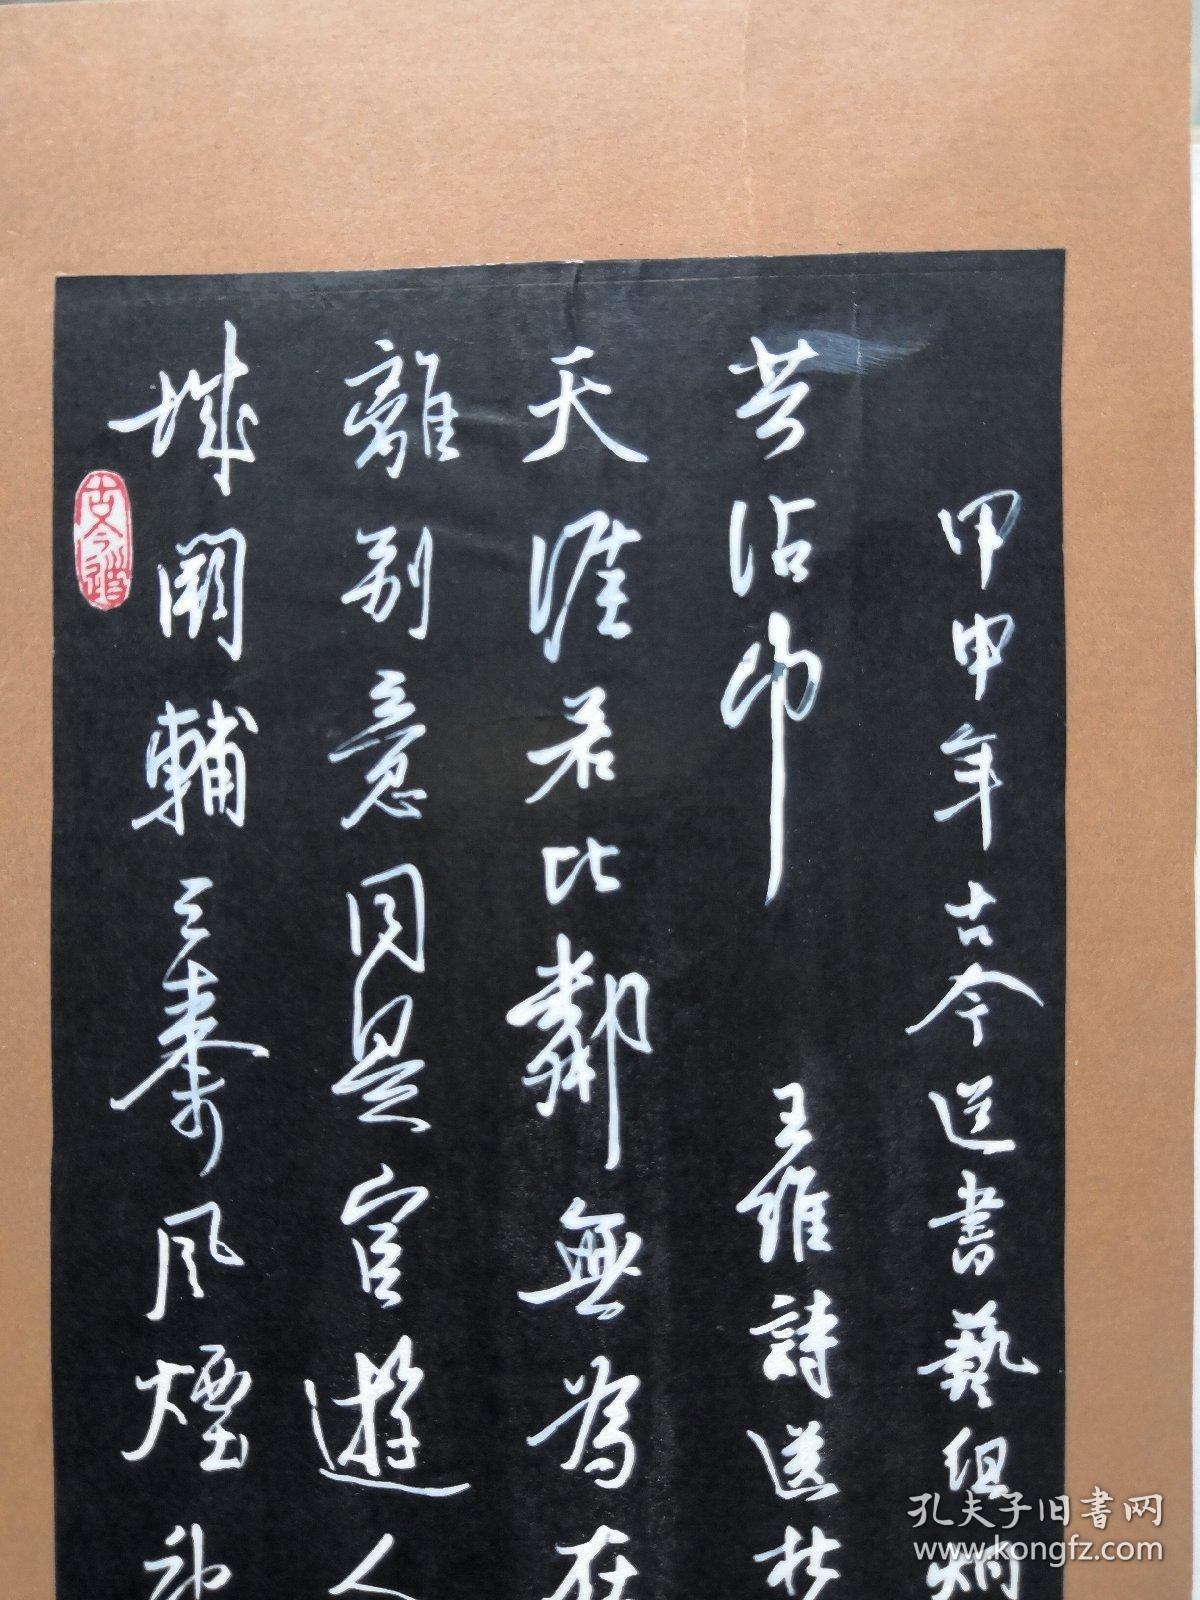 城闕輔三秦風煙
離別意同是宦遊人
天涯若比鄰無為在
共沾巾 王維詩送杜
甲申年古今道書藝組炯
古今道
孔夫子旧书网
www.kongfz.com